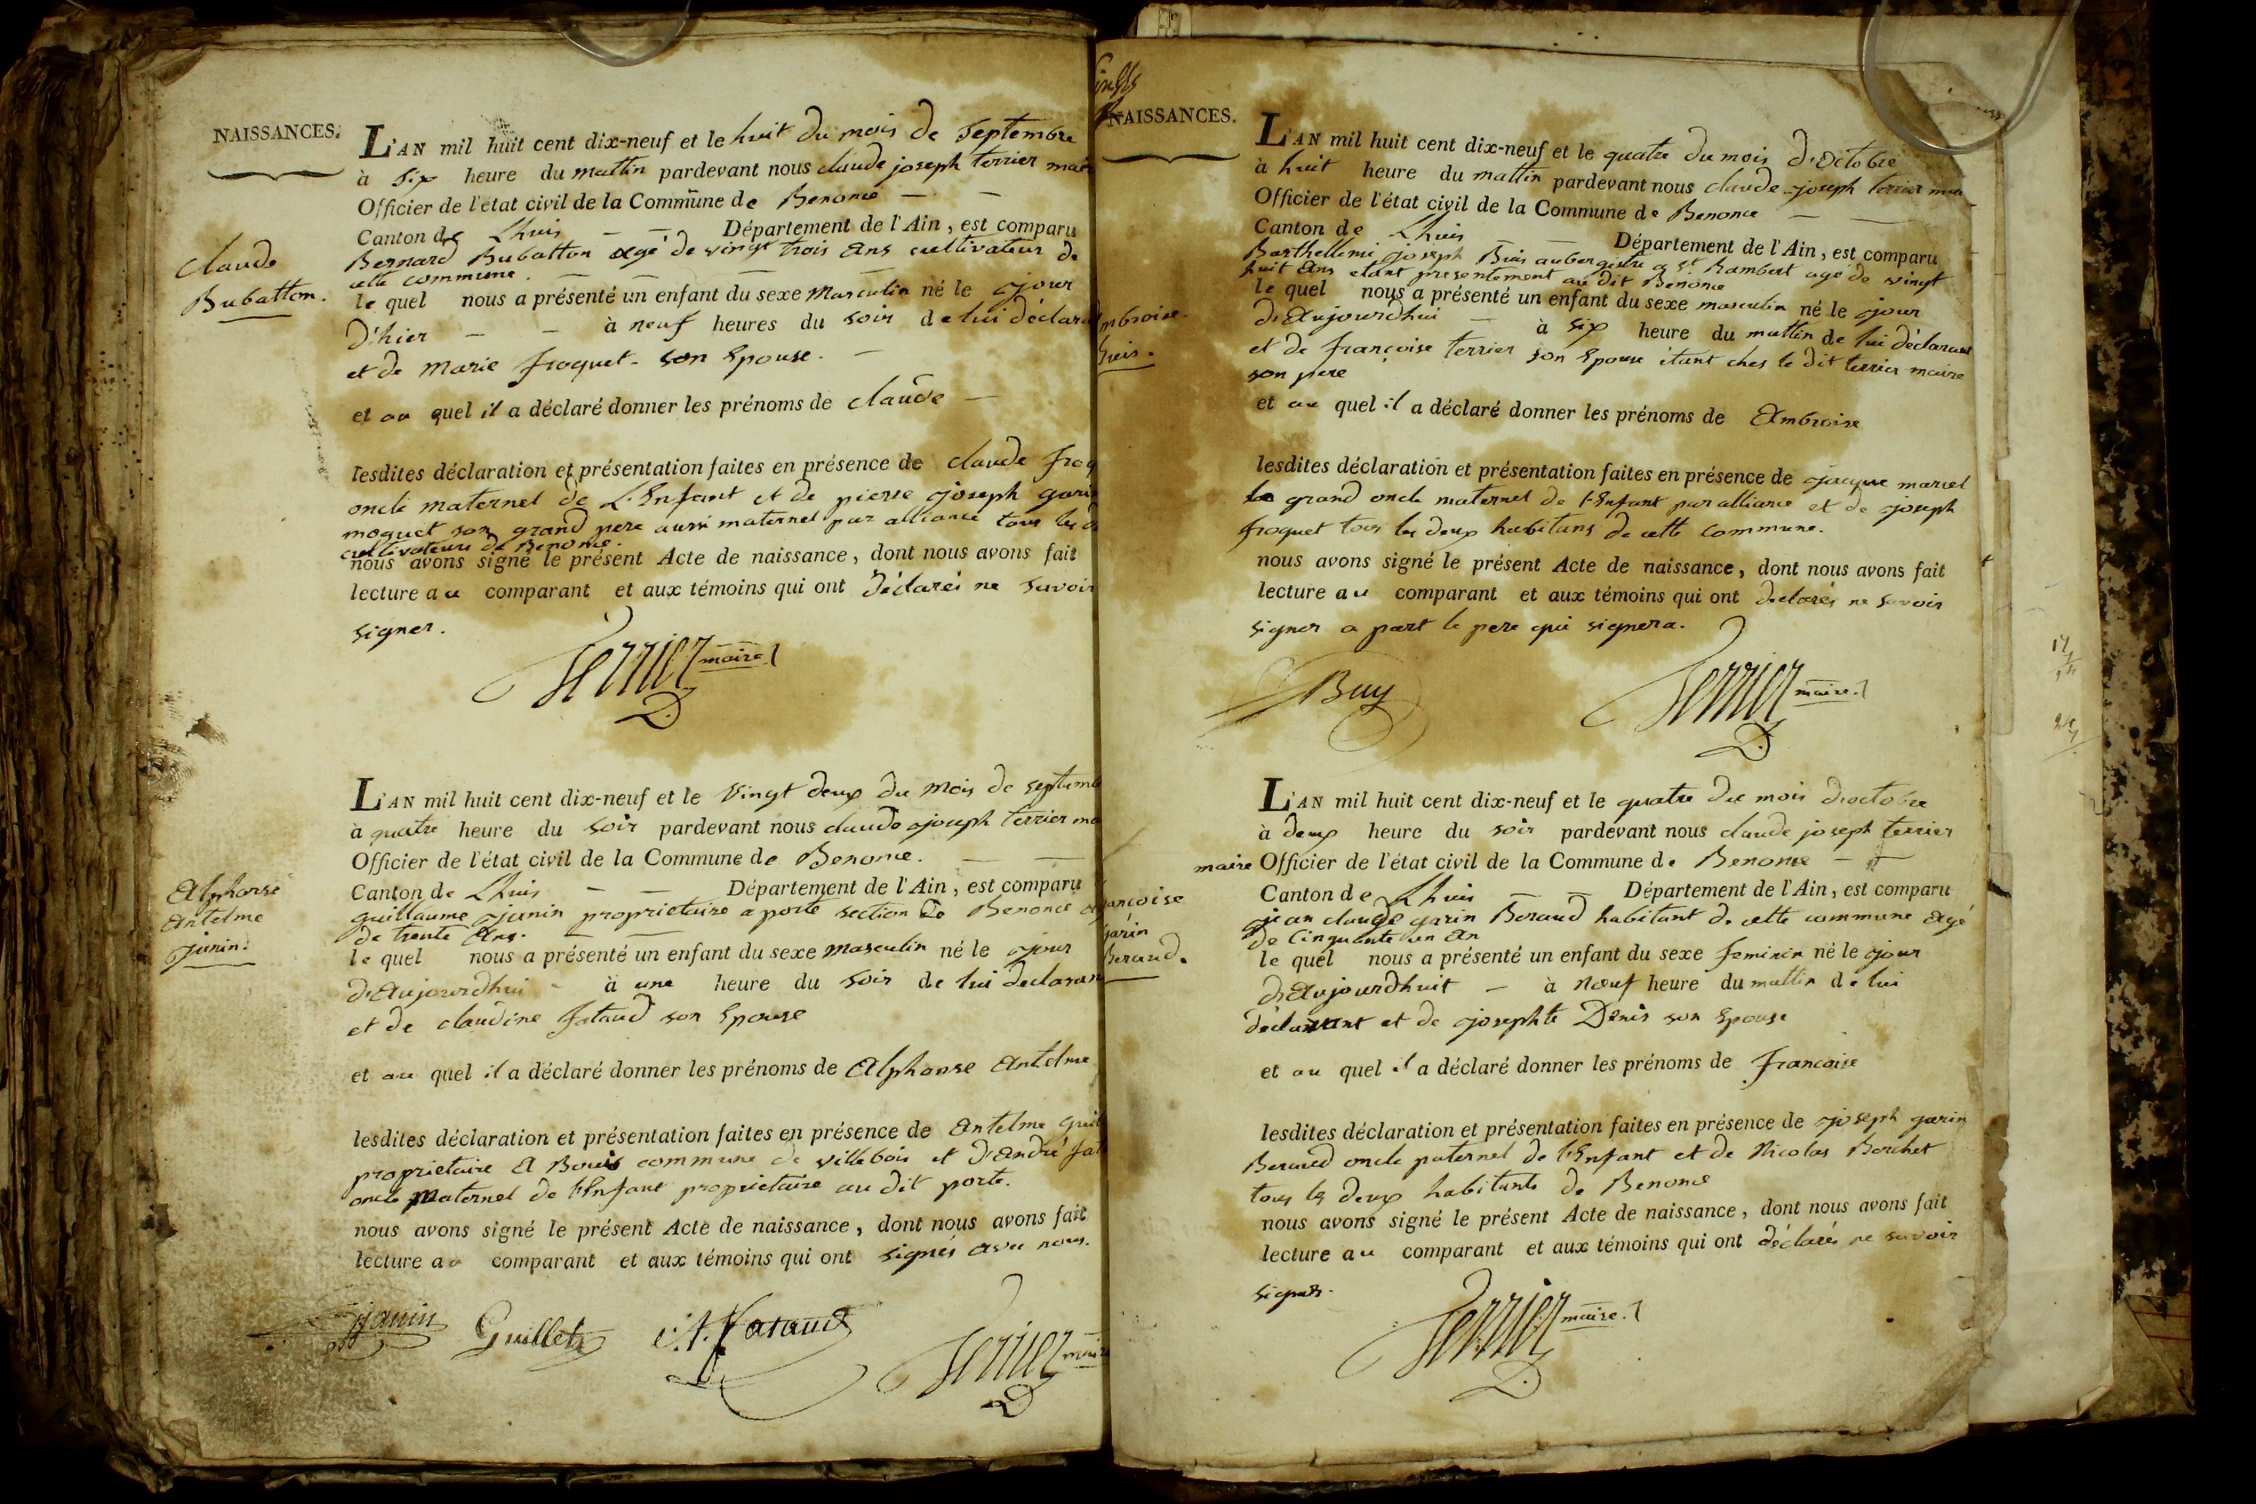 NAISSANCES.
L'AN mil huit cent dix-neuf et le huit du mois de Septembre
à Six heure du mattin pardevant nous claude joseph terrier mair
Officier de l'état civil de la Commune de Benonce
Canton de Lhuis Département de l'Ain, est comparu
Bernard Bubatton agé de vingt trois ans cultivateur de
cette commune.
le quel nous a présenté un enfant du sexe Masculin né le jour
D'hier à neuf heures du soir de lui déclara
et de Marie froquet son Epouse.
et au quel il a déclaré donner les prénoms de claude
lesdites déclaration et présentation faites en présence de claude froq
oncle maternel de L'Enfant et de pierre joseph garin
moquet son grand pere aussi maternel par alliance tous les d
cultivateurs de Benonce.
nous avons signé le présent Acte de naissance, dont nous avons fait
lecture au comparant et aux témoins qui ont déclarés ne savoir
signer.
Terrier maire
claude
Bubatton.
L'AN mil huit cent dix-neuf et le Vingt deux du mois de septemb
à quatre heure du soir pardevant nous claude joseph terrier ma
Officier de l'état civil de la Commune de Benonce.
Canton de Lhuis Département de l'Ain, est comparu
guillaume janin proprietaire a porte section de Benonce
de trente ans.
le quel nous a présenté un enfant du sexe masculin né le jour
d'aujourdhui à une heure du soir de lui declaran
et de claudine fataud son Epouse
et au quel il a déclaré donner les prénoms de Alphonse Antelme
lesdites déclaration et présentation faites en présence de Antelme guil
proprietaire a Bouis commune de villebois et d'andré fat
oncle maternel de l'Enfant proprietaire au dit porte.
nous avons signé le présent Acte de naissance, dont nous avons fait
lecture au comparant et aux témoins qui ont signés avec nous.
Janin Guillet A. Fataud Terrier mair
Alphonse
Antelme
janin.
NAISSANCES.
L'AN mil huit cent dix-neuf et le quatre du mois d'Octobre
à huit heure du mattin pardevant nous claude joseph terrier mai
Officier de l'état civil de la Commune de Benonce
Canton de Lhuis Département de l'Ain, est comparu
Barthellemi joseph Buis aubergiste a St Rambert agé de vingt
huit ans etant presentement au dit Benonce
le quel nous a présenté un enfant du sexe masculin né le jour
d'aujourdhui à six heure du mattin de lui déclarant
et de françoise terrier son Epouse étant ches le dit terrier maire
son pere
et au quel il a déclaré donner les prénoms de Ambroise
lesdites déclaration et présentation faites en présence de jacque marcel
grand oncle maternel de l'Enfant par alliance et de joseph
froquet tous les deux habitans de cette commune.
nous avons signé le présent Acte de naissance, dont nous avons fait
lecture au comparant et aux témoins qui ont declarés ne savoir
signer a part le pere qui signera.
Buy Terrier maire
mbroise
buis.
L'AN mil huit cent dix-neuf et le quatre du mois d'octobre
à deux heure du soir pardevant nous claude joseph terrier
maire Officier de l'état civil de la Commune de Benonce
Canton de Lhuis Département de l'Ain, est comparu
jean claude garin Beraud habitant de cette commune agé
de Cinquante un an
le quel nous a présenté un enfant du sexe feminin né le jour
d'aujourdhuit à neuf heure du mattin de lui
déclarant et de josephte Denis son Epouse
et au quel il a déclaré donner les prénoms de francoise
lesdites déclaration et présentation faites en présence de joseph garin
Beraud oncle paternel de l'Enfant et de Nicolas Berchet
tous les deux habitants de Benonce
nous avons signé le présent Acte de naissance, dont nous avons fait
lecture au comparant et aux témoins qui ont déclarés ne savoir
signer.
Terrier maire.
ancoise
garin
Beraud.